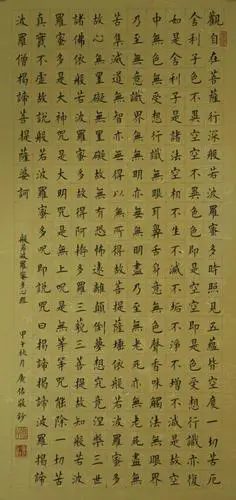 觀自在菩薩行深般若波羅蜜多時照見五蘊皆空度一切苦厄
舍利子色不異空空不異色色即是空空即是色受想行識亦復
如是舍利子是諸法空相不生不滅不垢不淨不增不減是故空
中無色無受想行識無眼耳鼻舌身意無色聲香味觸法無眼界
乃至無意識界無無明亦無無明盡乃至無老死亦無老死盡無
苦集滅道無智亦無得以無所得故菩提薩埵依般若波羅蜜多
故心無罣礙無罣礙故無有恐怖遠離顛倒夢想究竟涅槃三世
諸佛依般若波羅蜜多故得阿耨多羅三藐三菩提故知般若波
羅蜜多是大神咒是大明咒是無上咒是無等等咒能除一切苦
真實不虛故說般若波羅蜜多咒即說咒曰揭諦揭諦波羅揭諦
波羅僧揭諦菩提薩婆訶
般若波羅蜜多心經
甲午秋月